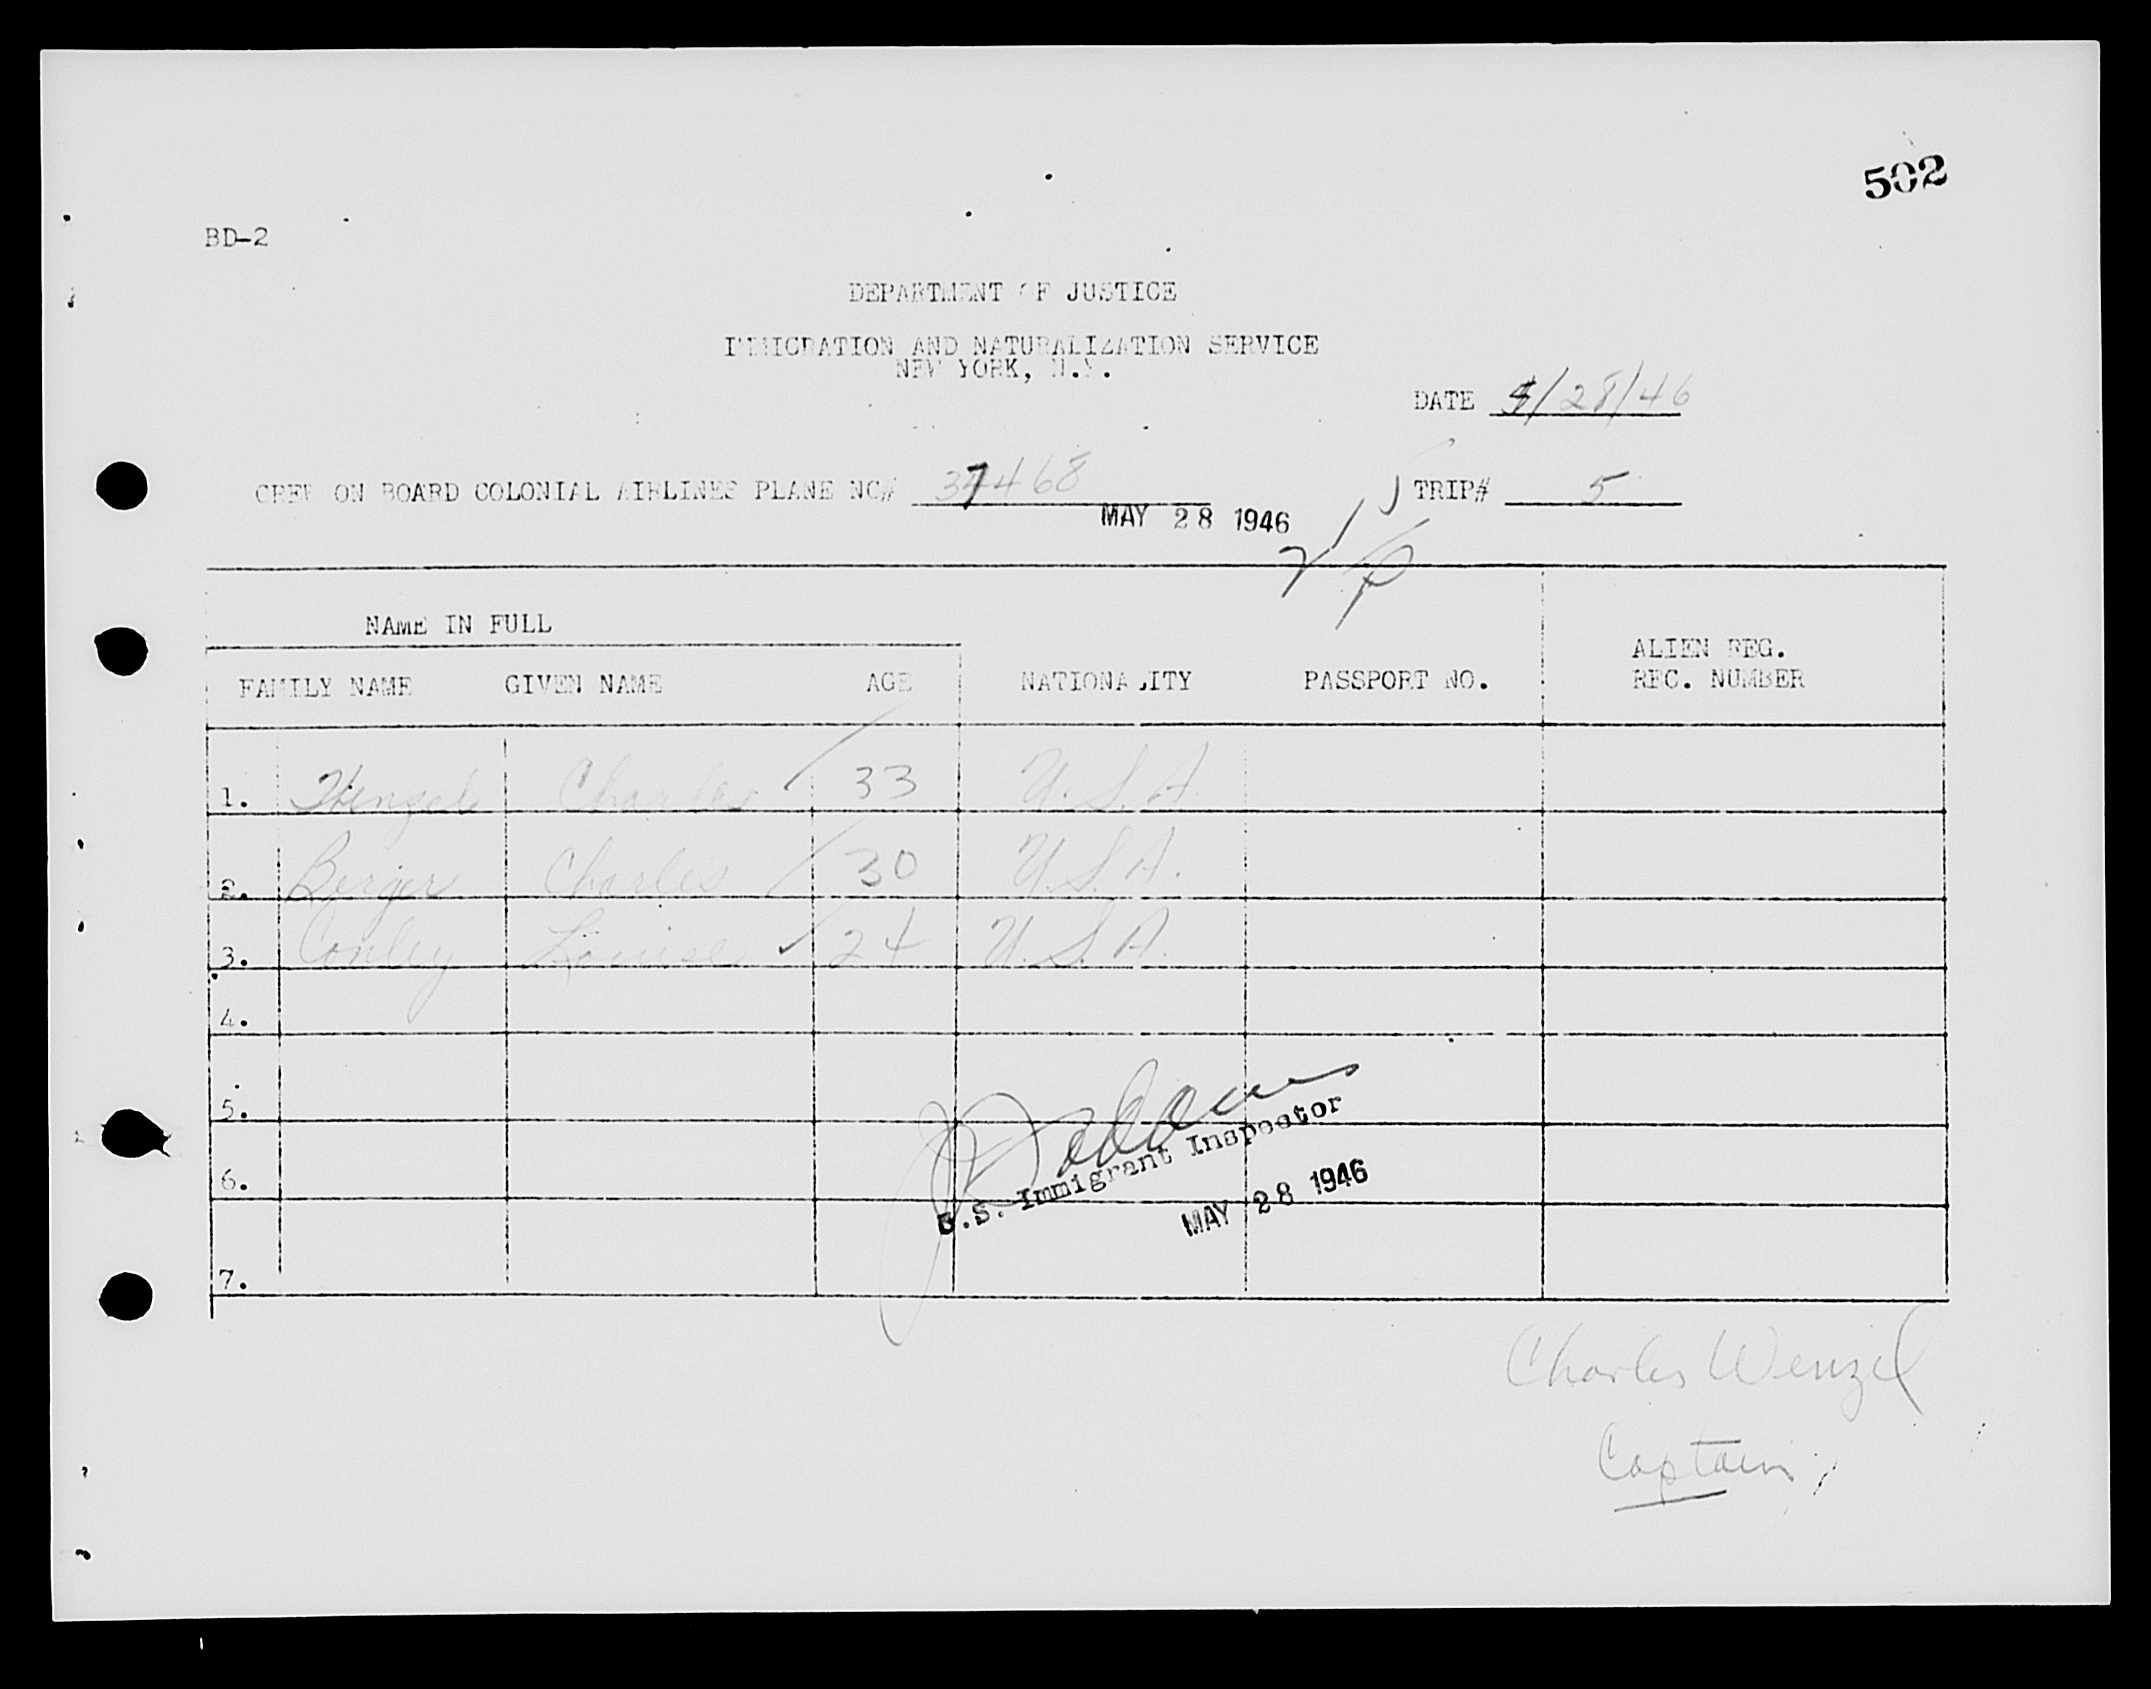 502
BD-2
DEPARTMENT OF JUSTICE
IMMIGRATION AND NATURALIZATION SERVICE
NEW YORK, N.Y.
DATE 5/28/46
CREW ON BOARD COLONIAL AIRLINES PLANE NC# 37468
TRIP# 5
MAY 28 1946
NAME IN FULL
FAMILY NAME GIVEN NAME AGE NATIONALITY PASSPORT NO. ALIEN REG. REC. NUMBER
1. Wenzel Charles 33 U.S.A.
2. Berger Charles 30 U.S.A.
3. Conley Louise 24 U.S.A.
4.
5.
6.
7.
U.S. Immigrant Inspector
MAY 28 1946
Charles Wenzel
Captain